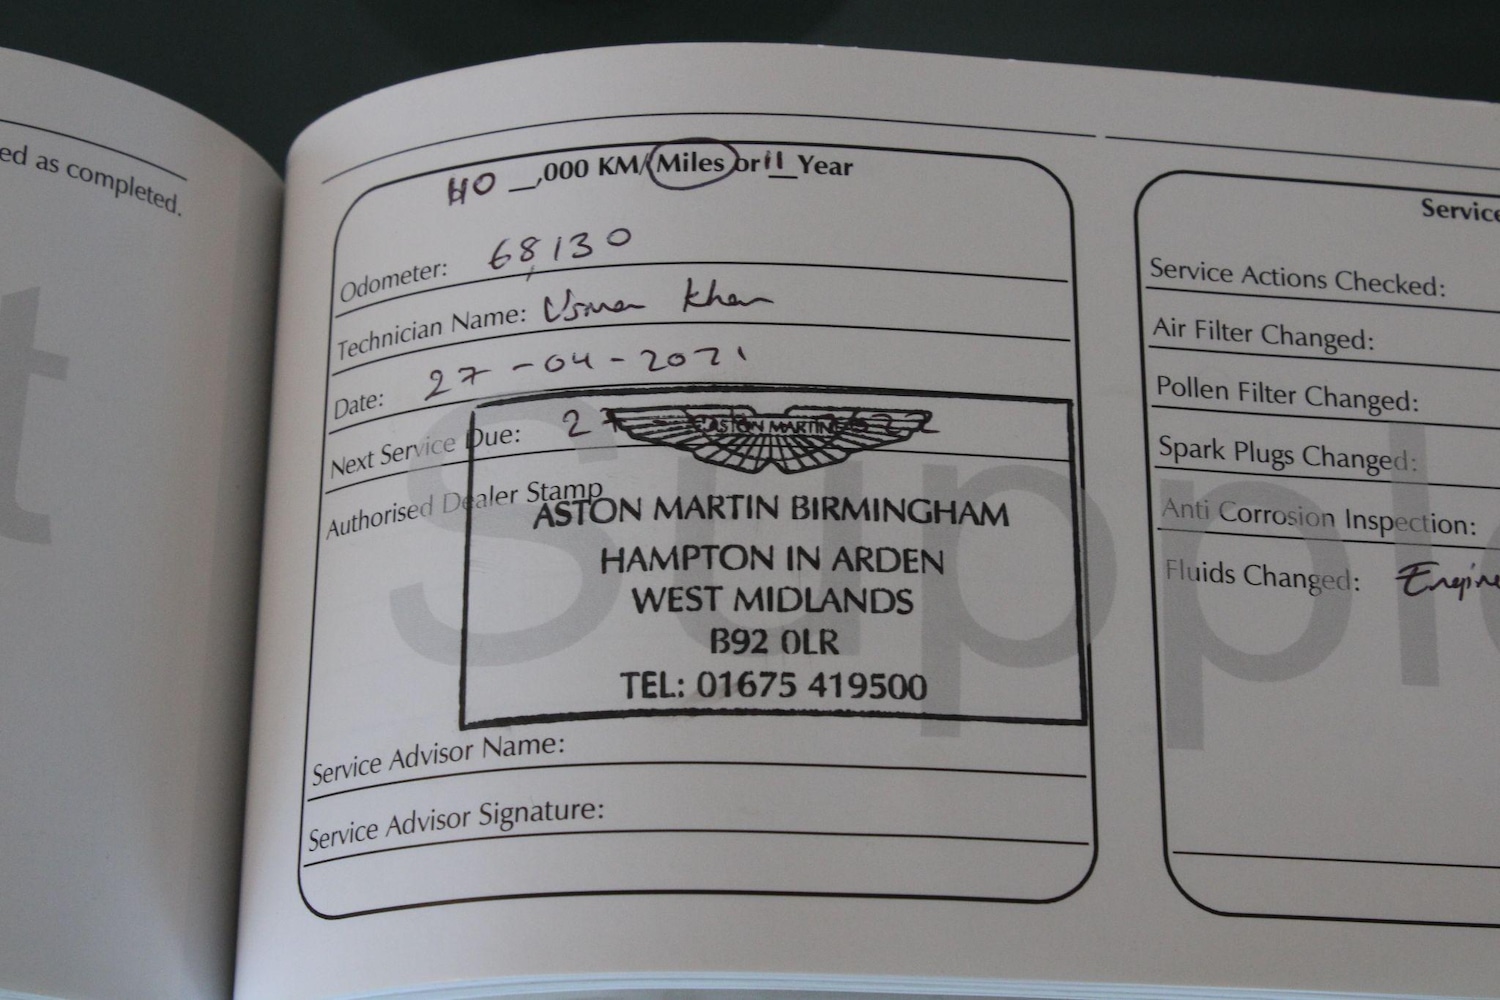 ed as completed.
t
110 __,000 KM/Miles or 11 Year
Odometer: 68,130
Technician Name: Usman Khan
Date: 27-04-2021
Next Service Due: 27
ASTON MARTIN
Authorised Dealer Stamp
ASTON MARTIN BIRMINGHAM
HAMPTON IN ARDEN
WEST MIDLANDS
B92 0LR
TEL: 01675 419500
Service Advisor Name:
Service Advisor Signature:
Supple
Service
Service Actions Checked:
Air Filter Changed:
Pollen Filter Changed:
Spark Plugs Changed:
Anti Corrosion Inspection:
Fluids Changed: Engine